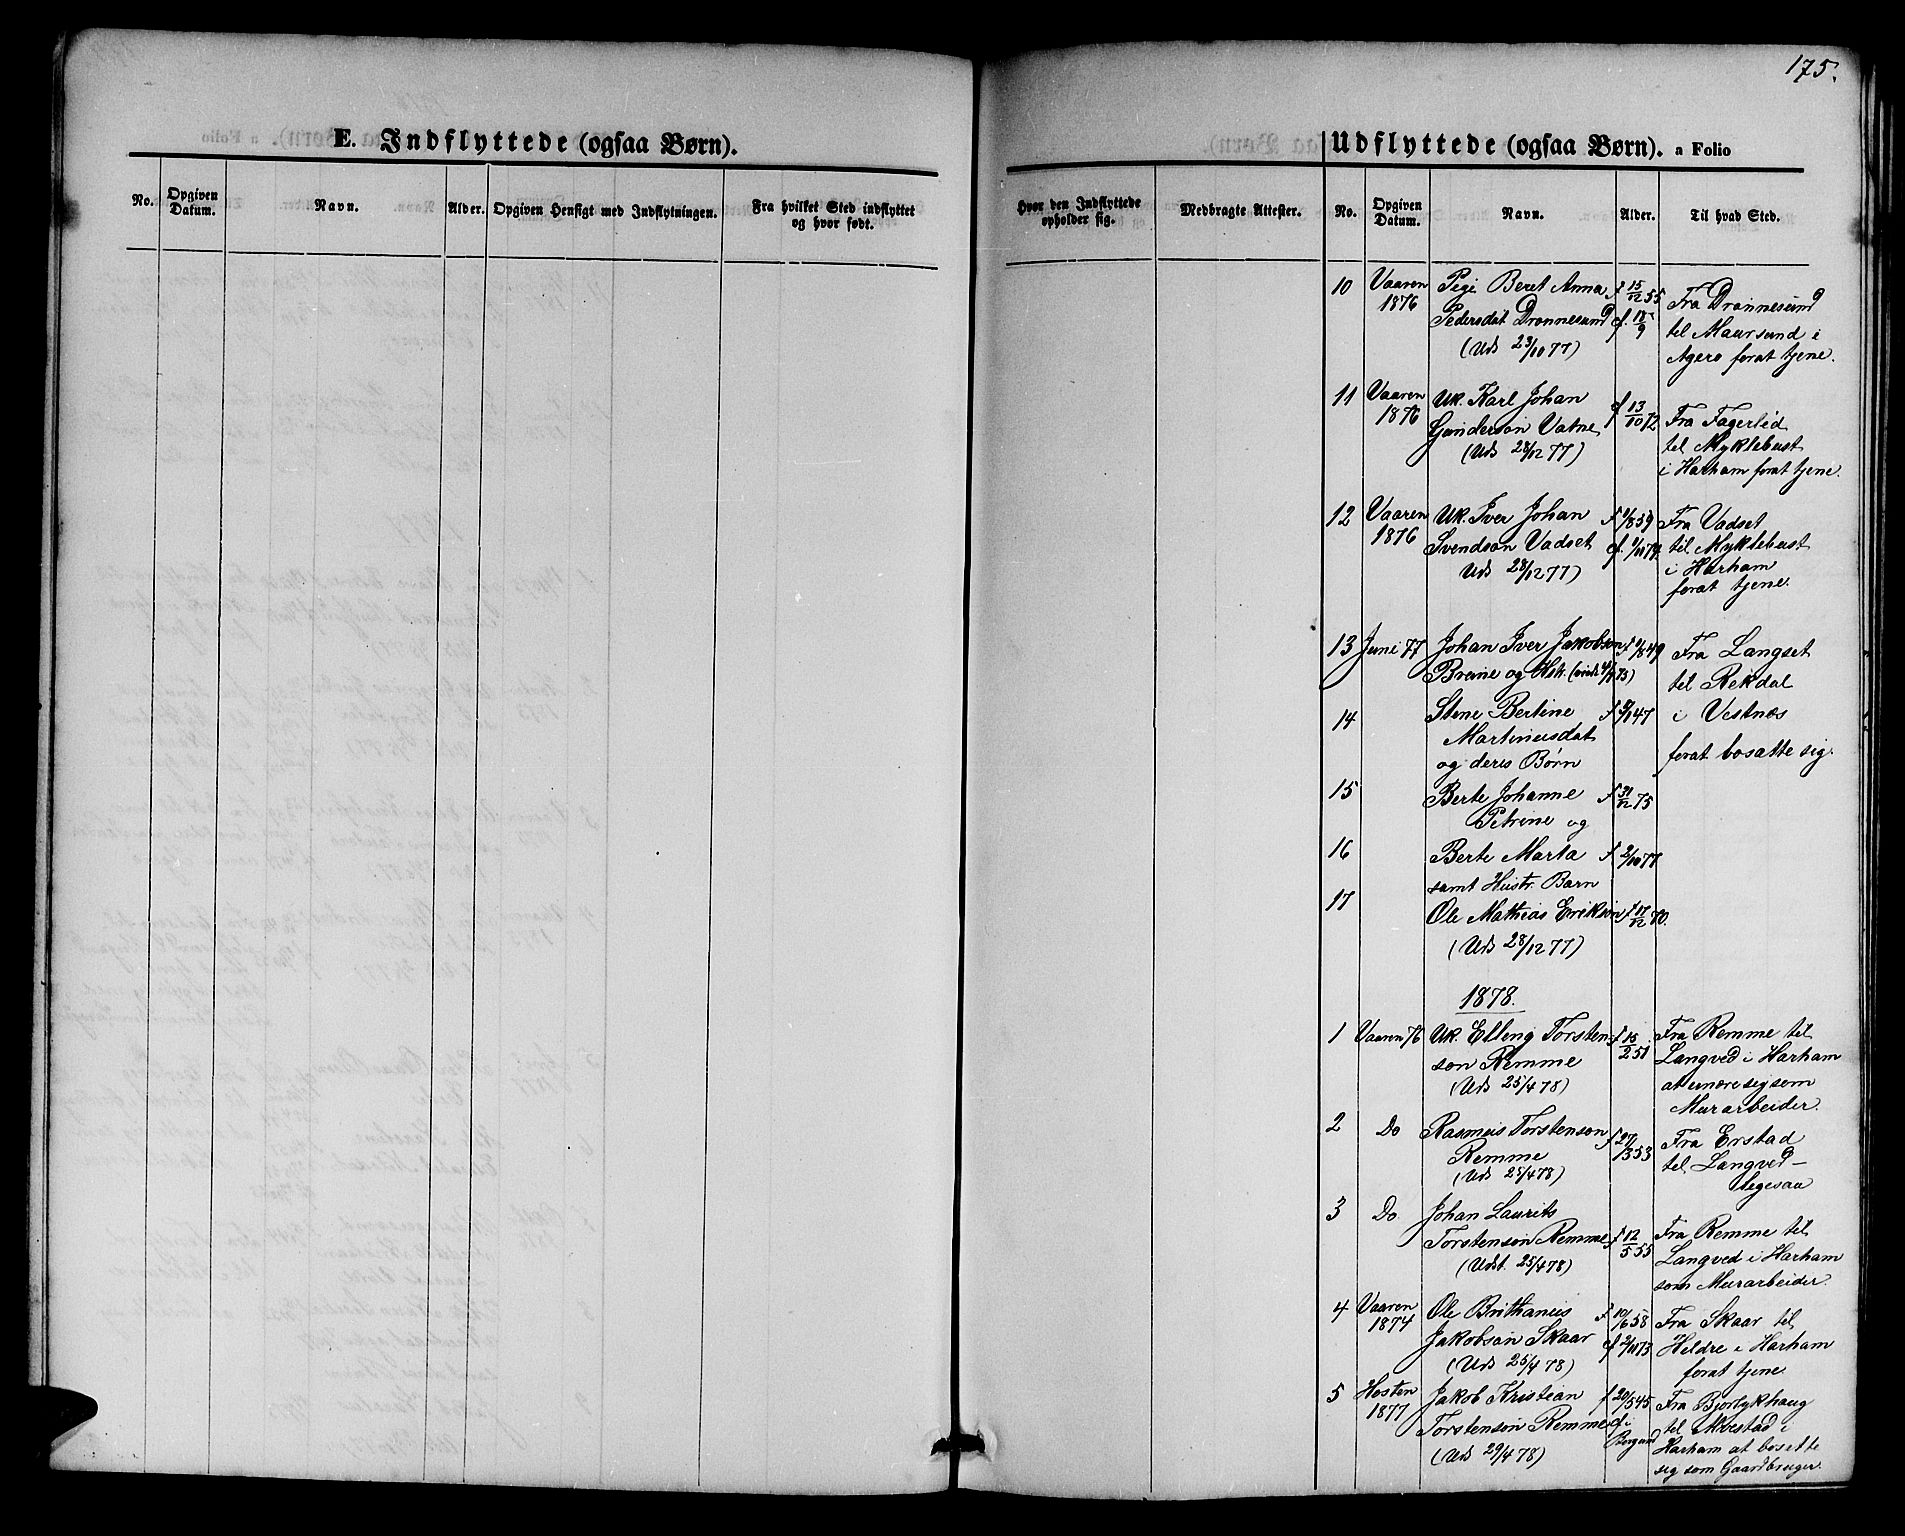 175.
E. Indflyttede (ogsaa Børn).
No. Opgiven Datum. Navn. Alder. Opgiven Hensigt med Indflytningen. Fra hvilket Sted indflyttet og hvor født.
Udflyttede (ogsaa Børn). a Folio
Hvor den Indflyttede opholder sig. Medbragte Attester. No. Opgiven Datum. Navn. Alder. Til hvad Sted.
10 Vaaren Pige Beret Anna f 15/12 55 Fra Drønnesund
1876 Pedersdat Drønnesund cf. 18/9 til Maursund i
(Uds 23/10 77) Agerø forat tjene.
11 Vaaren Uk. Karl Johan f 13/10 72 Fra Fagerlid
1876 Gunderson Vatne til Myklebust
(Uds 28/12 77) i Harham forat tjene.
12 Vaaren Uk. Iver Johan f 1/8 59 Fra Vadset
1876 Svendson Vadset cf. 1/10 74 til Myklebust
Uds 28/12 77) i Harham
forat tjene.
13 Juni 77 Johan Iver Jakobson f 1/8 49 Fra Langset
Breine og Hstr. til Rekdal
14 Stine Bertine f 3/1 47 i Vestnæs
Martinusdat forat bosætte sig.
og deres Børn
15 Berte Johanne f 31/12 75
Petrine og
16 Berte Marta f 2/10 77
samt Hustr. Barn
17 Ole Mathias Erikson f 17/12 70.
(Uds 28/12 77)
1878.
1 Vaaren 76 Uk. Elling Torsten f 15/2 51 Fra Remme til
son Remme Langved i Harham
(Uds 25/4 78) at ernære sig som
Murarbeider.
2 Do Rasmus Torstenson f 27/3 53 Fra Erstad
Remme til Langved -
(Uds 25/4 78) ligesaa
3 Do Johan Laurits Fra Remme til
Torstenson Remme f 12/5 55 Langved i Harham
(Udst. 25/4 78) som Murarbeider.
4 Vaaren Ole Brithanius f 10/6 58 Fra Skaar til
1874 Jakobson Skaar cf 2/11 73 Heldre i Harham
(Uds 25/4 78) forat tjene.
5 Høsten Jakob Kristian f 20/5 45 Fra Bjørlykhaug
1877 Torstenson Remme cf i til Alvestad i
(Uds 29/4 78) Borgund Harham at bosætte
sig som Gaardbruger.